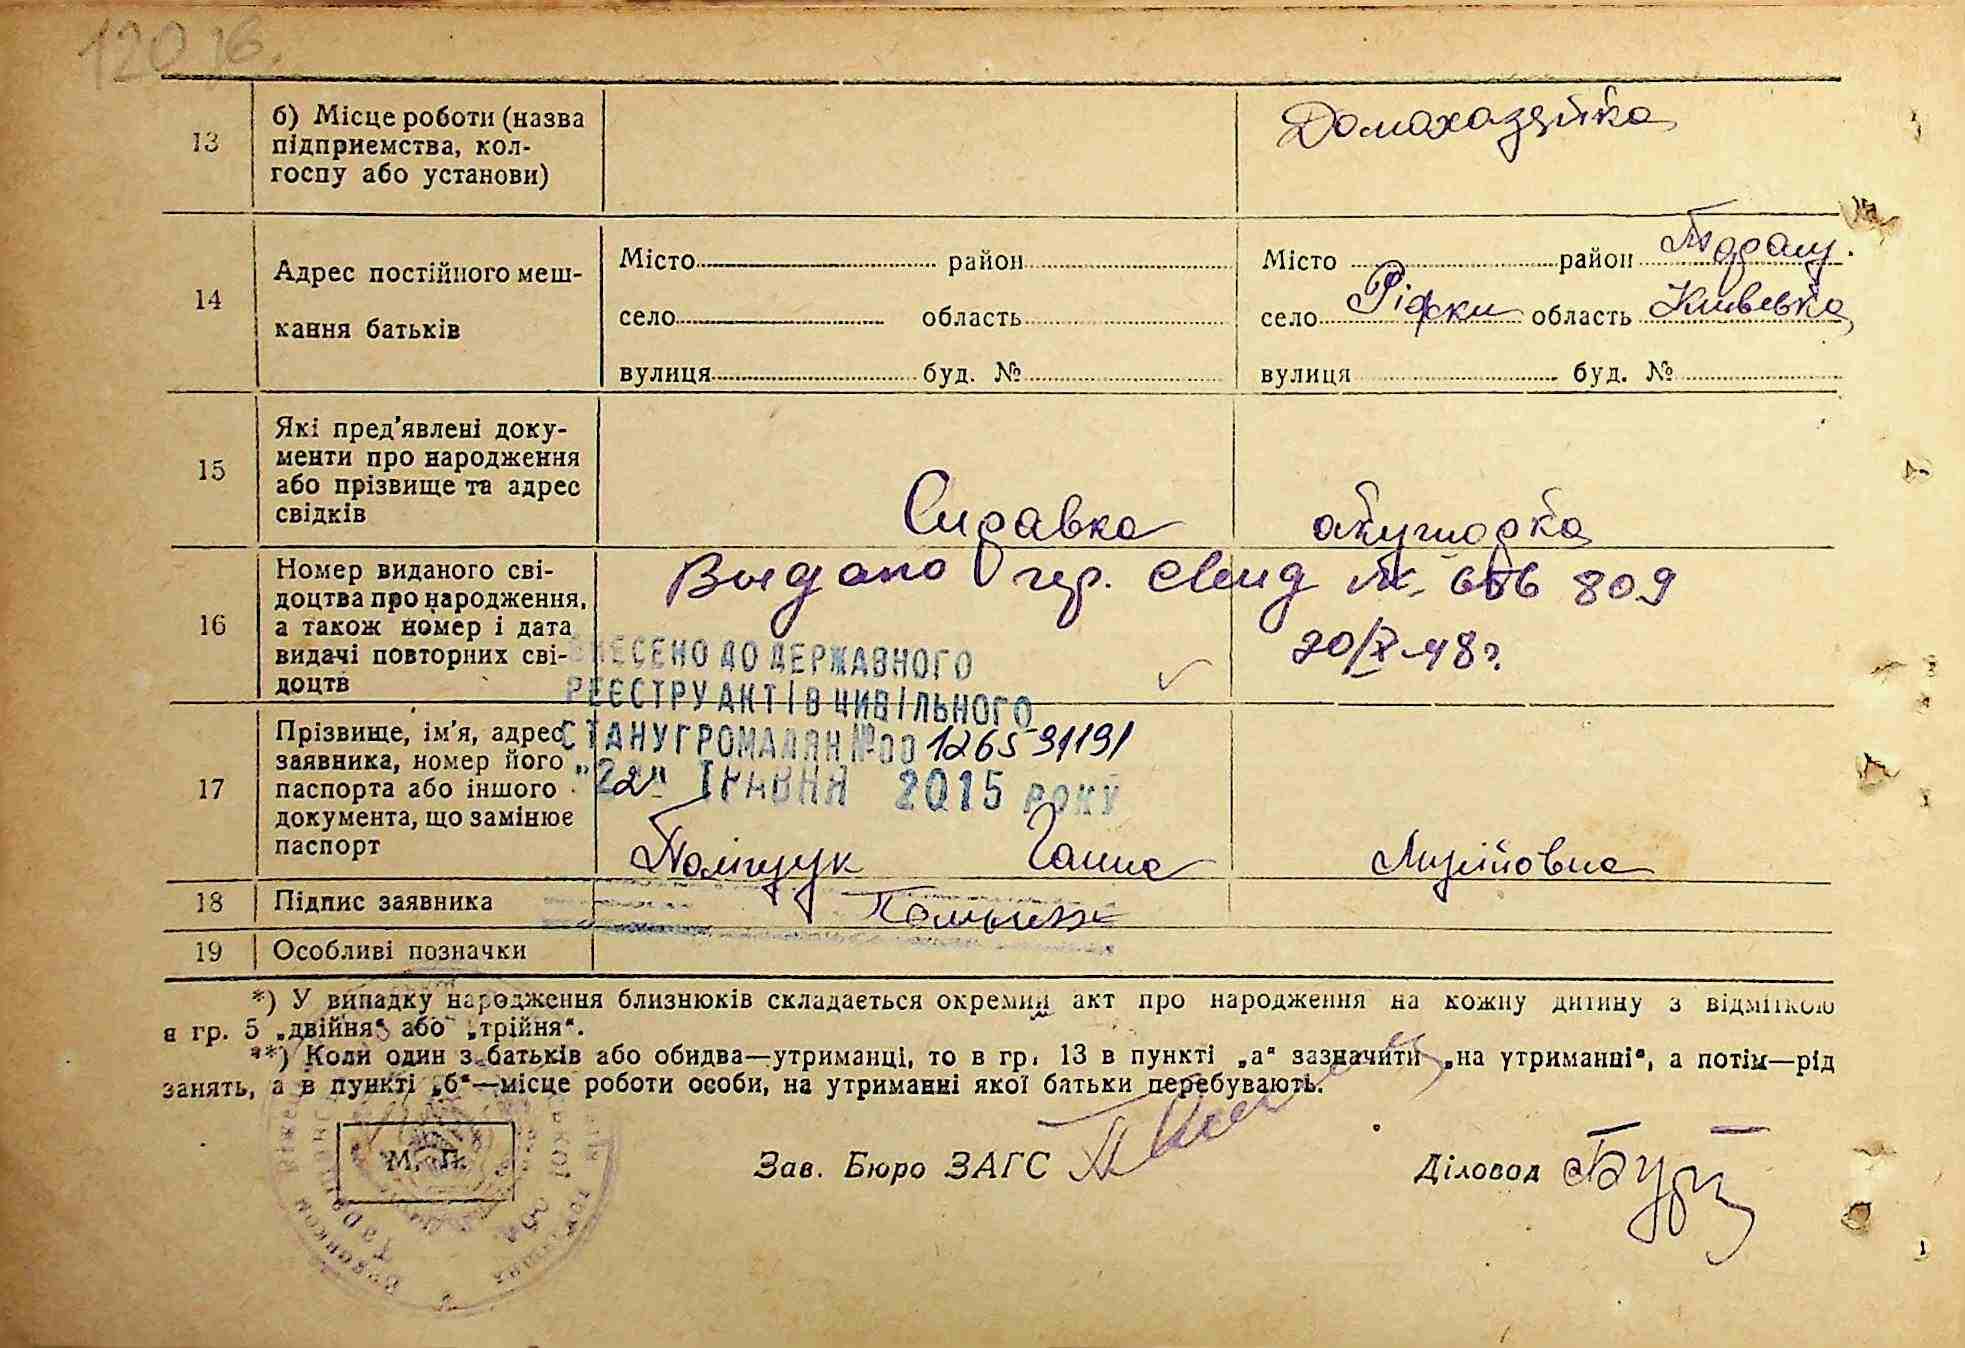 120 зб.
13
б) Місце роботи (назва
підприємства, кол-
госпу або установи)
Домохазяйка
14
Адрес постійного меш-
кання батьків
Місто район
село область
вулиця буд. №
Місто район
село область Київська
вулиця буд. №
15
Які пред'явлені доку-
менти про народження
або прізвище та адрес
свідків
Справка акушорка
16
Номер виданого сві-
доцтва про народження,
а також номер і дата
видачі повторних сві-
доцтв
Видано 809
20/X-48 г.
ВНЕСЕНО ДО ДЕРЖАВНОГО
РЕЄСТРУ АКТІВ ЦИВІЛЬНОГО
СТАНУ ГРОМАДЯН №00126591191
"22" ТРАВНЯ 2015 РОКУ
17
Прізвище, ім'я, адрес
заявника, номер його
паспорта або іншого
документа, що замінює
паспорт
Поліщук Ганна
18
Підпис заявника
19
Особливі позначки
*) У випадку народження близнюків складається окремий акт про народження на кожну дитину з відміткою
в гр. 5 „двійня“ або „трійня“.
**) Коли один з батьків або обидва—утриманці, то в гр. 13 в пункті „а“ зазначити „на утриманні“, а потім—рід
занять, а в пункті „б“—місце роботи особи, на утриманні якої батьки перебувають.
М. П.
Зав. Бюро ЗАГС
Діловод